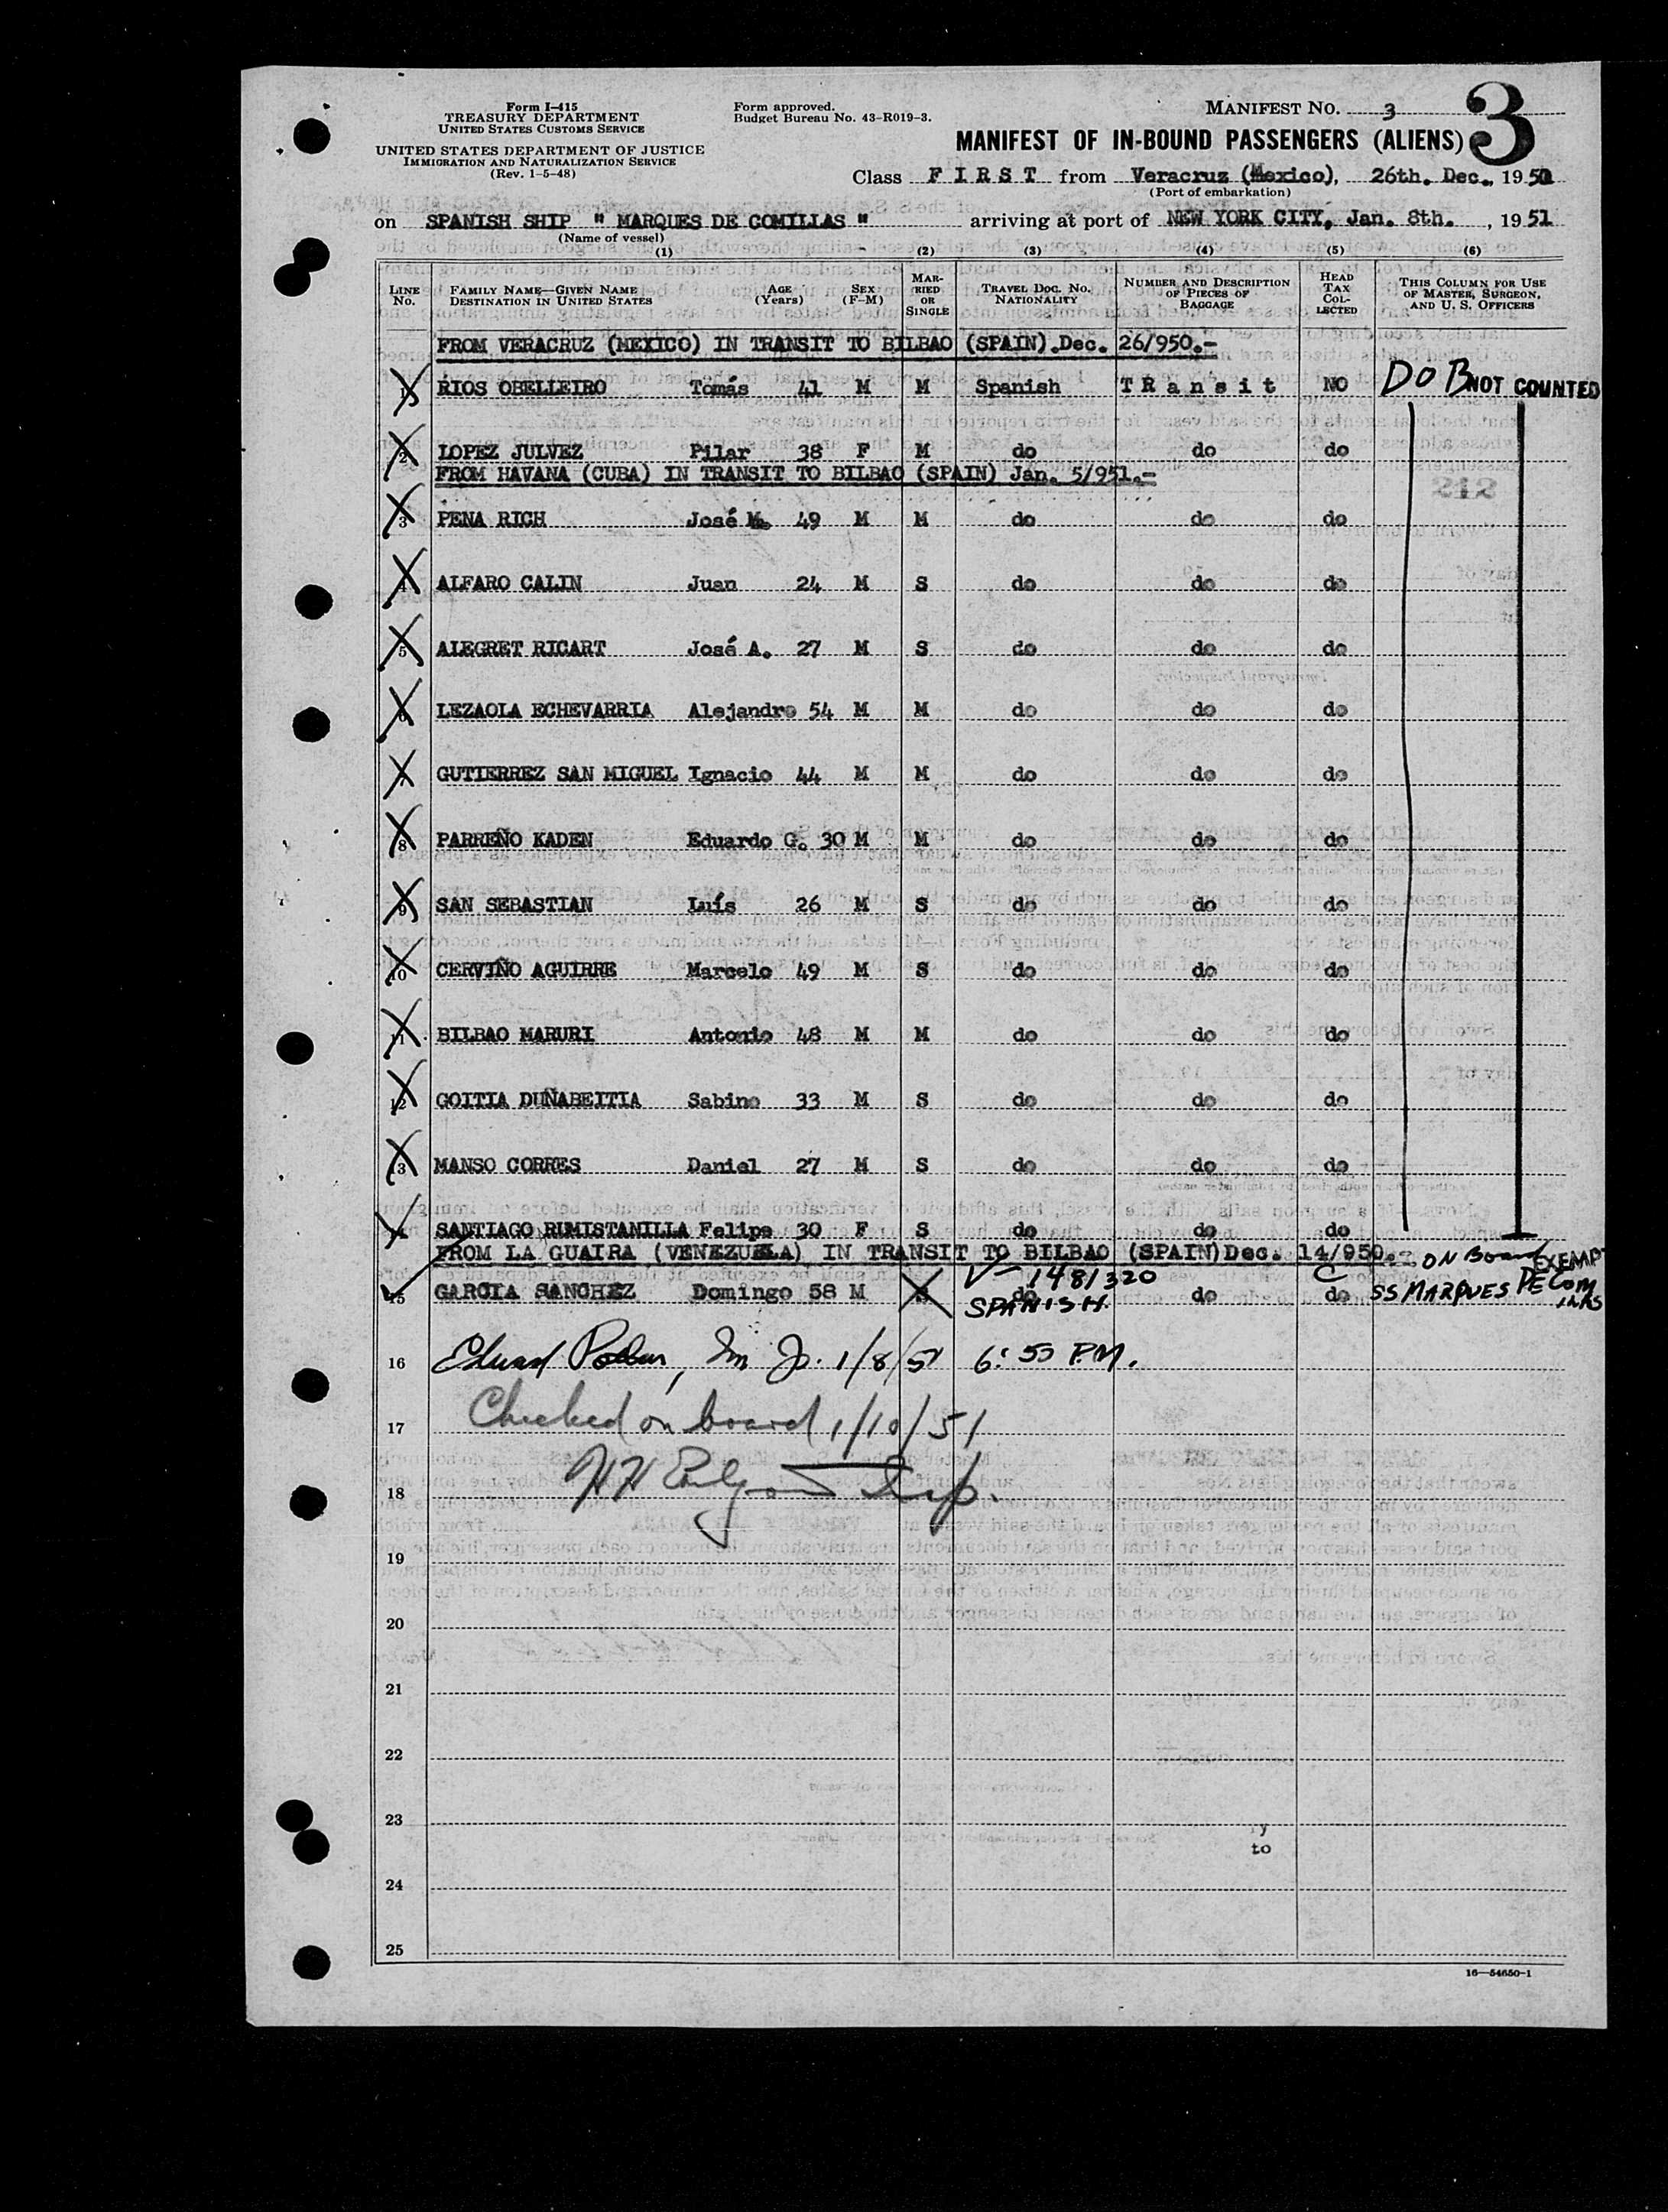 Form I-415
TREASURY DEPARTMENT
UNITED STATES CUSTOMS SERVICE
UNITED STATES DEPARTMENT OF JUSTICE
IMMIGRATION AND NATURALIZATION SERVICE
(Rev. 1-5-48)
Form approved.
Budget Bureau No. 43-R019-3.
MANIFEST NO. 3
3
MANIFEST OF IN-BOUND PASSENGERS (ALIENS)
Class FIRST from Veracruz (Mexico), 26th. Dec., 1950
(Port of embarkation)
on SPANISH SHIP " MARQUES DE COMILLAS " arriving at port of NEW YORK CITY, Jan. 8th., 1951
(Name of vessel)
(1) (2) (3) (4) (5) (6)
LINE No. FAMILY NAME—GIVEN NAME DESTINATION IN UNITED STATES AGE (Years) SEX (F-M) MARRIED OR SINGLE TRAVEL DOC. NO. NATIONALITY NUMBER AND DESCRIPTION OF PIECES OF BAGGAGE HEAD TAX COLLECTED THIS COLUMN FOR USE OF MASTER, SURGEON, AND U. S. OFFICERS
FROM VERACRUZ (MEXICO) IN TRANSIT TO BILBAO (SPAIN).Dec. 26/950.-
1 RIOS OBELLEIRO Tomás 41 M M Spanish TRansit NO D O B NOT COUNTED
2 LOPEZ JULVEZ Pilar 38 F M do do do
FROM HAVANA (CUBA) IN TRANSIT TO BILBAO (SPAIN) Jan. 5/951.-
3 PENA RICH José M. 49 M M do do do
4 ALFARO CALIN Juan 24 M S do do do
5 ALEGRET RICART José A. 27 M S do do do
6 LEZAOLA ECHEVARRIA Alejandro 54 M M do do do
7 GUTIERREZ SAN MIGUEL Ignacio 44 M M do do do
8 PARREÑO KADEN Eduardo G. 30 M M do do do
9 SAN SEBASTIAN Luís 26 M S do do do
10 CERVIÑO AGUIRRE Marcelo 49 M S do do do
11 BILBAO MARURI Antonio 48 M M do do do
12 GOITIA DUÑABEITIA Sabino 33 M S do do do
13 MANSO CORRES Daniel 27 M S do do do
14 SANTIAGO RUMISTANILLA Felipe 30 F S do do do
FROM LA GUAIRA (VENEZUELA) IN TRANSIT TO BILBAO (SPAIN)Dec. 14/950.- ON Board EXEMPT
V-1481320 C
15 GARCIA SANCHEZ Domingo 58 M S do do do SS MARQUES DE COMILLAS
SPANISH
16 1/8/51 6:55 P.M.
17 Checked on board 1/10/51
18 Insp.
19
20
21
22
23
to
24
25
16—54650-1